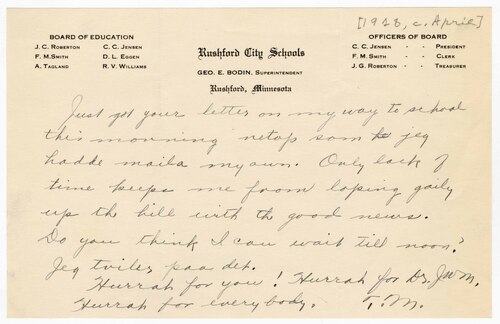 [1918, c. April]
BOARD OF EDUCATION
J. C. ROBERTON C. C. JENSEN
F. M. SMITH D. L. EGGEN
A. TAGLAND R. V. WILLIAMS
Rushford City Schools
GEO. E. BODIN, SUPERINTENDENT
Rushford, Minnesota
OFFICERS OF BOARD
C. C. JENSEN - - PRESIDENT
F. M. SMITH - - CLERK
J. G. ROBERTON - - TREASURER
Just got your letter on my way to school
this morning netop som jeg
hadde maila my own. Only lack of
time keeps me from loping gaily
up the hill with the good news.
Do you think I can wait till noon?
Jeg tviler paa det.
Hurrah for you! Hurrah for Dr. J.W.M.
Hurrah for everybody. T.M.